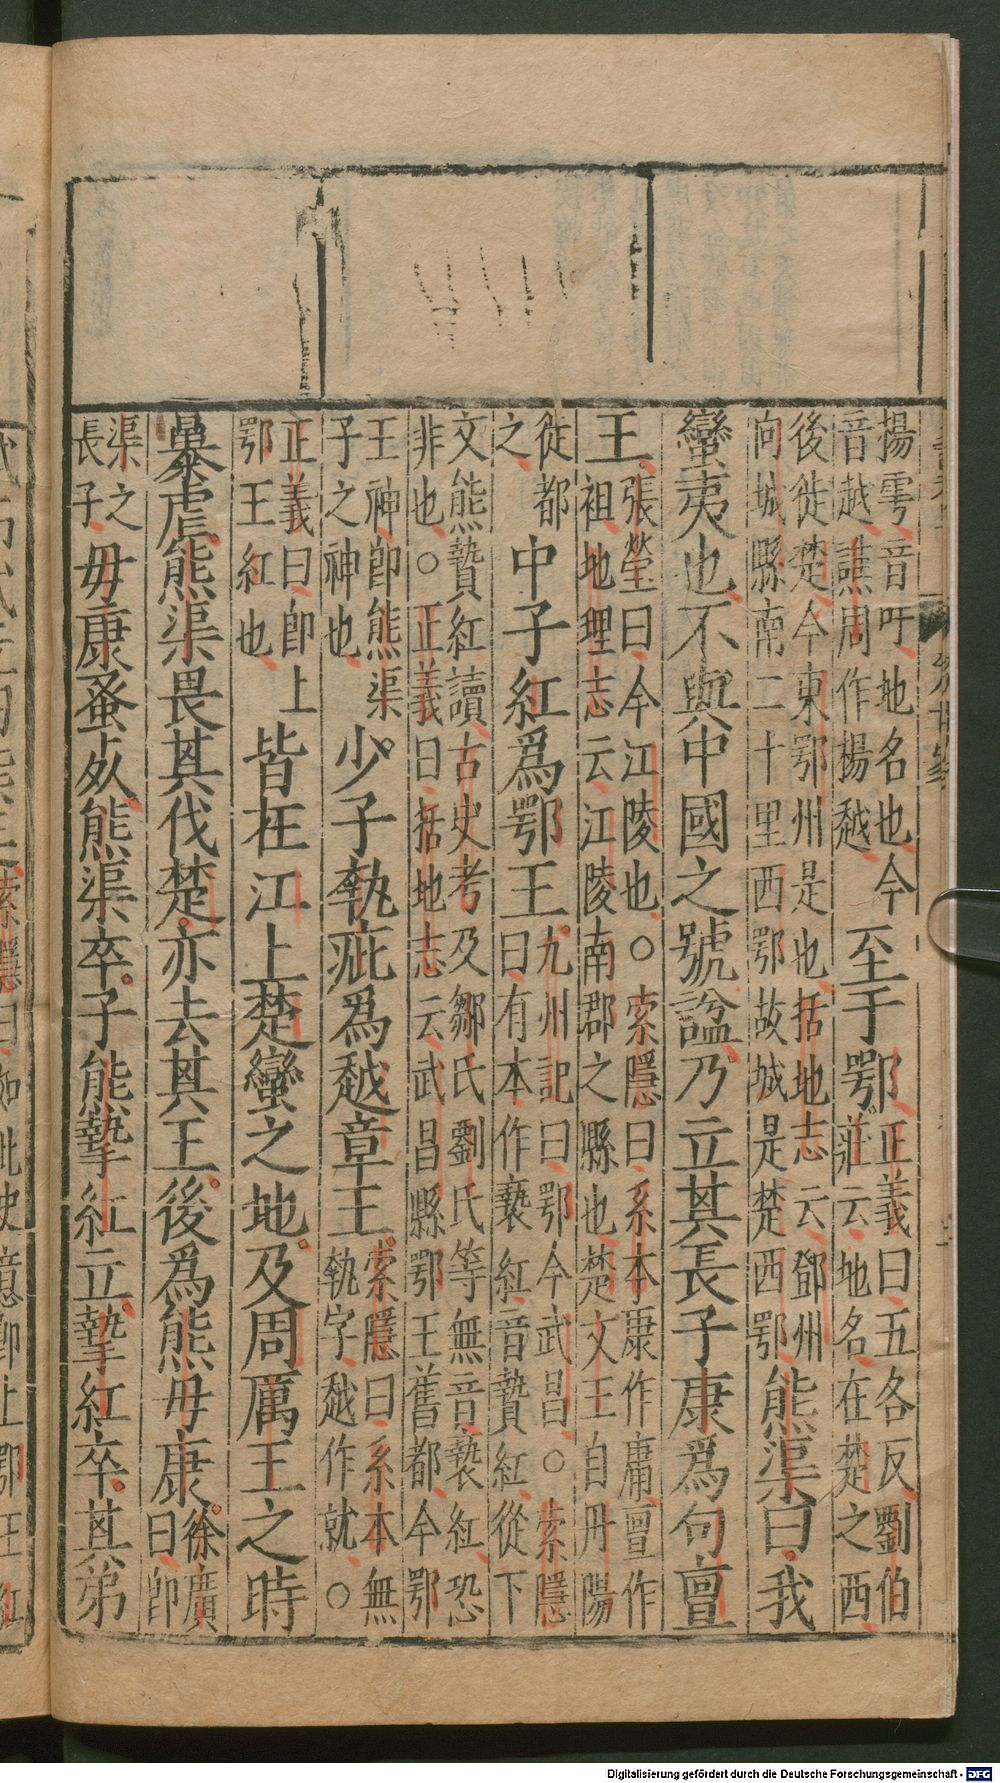 揚雩音吁地名也今音越譙周作楊越至于鄂正義曰五各反劉伯莊云地名在楚之西
後徙楚今東鄂州是也括地志云鄧州向城縣南二十里西鄂故城是楚西鄂熊渠曰我
蠻夷也不與中國之號諡乃立其長子康爲句亶
王張瑩曰今江陵也○索隱曰系本康作庸亶作祖地理志云江陵南郡之縣也楚文王自丹陽
徙都之中子紅爲鄂王九州記曰鄂今武昌○索隱曰有本作藝紅音贄紅從下
文熊贄紅讀古史考及鄒氏劉氏等無音藝紅恐非也○正義曰括地志云武昌縣鄂王舊都今鄂
王神卽熊渠子之神也少子執疵爲越章王索隱曰系本無執字越作就○
正義曰卽上鄂王紅也皆在江上楚蠻之地及周厲王之時
暴虐熊渠畏其伐楚亦去其王後爲熊毋康徐廣曰卽
渠之長子毋康蚤死熊渠卒子熊摯紅立摯紅卒其弟
索隱曰如此史意卽上鄂王紅
Digitalisierung gefördert durch die Deutsche Forschungsgemeinschaft - DFG